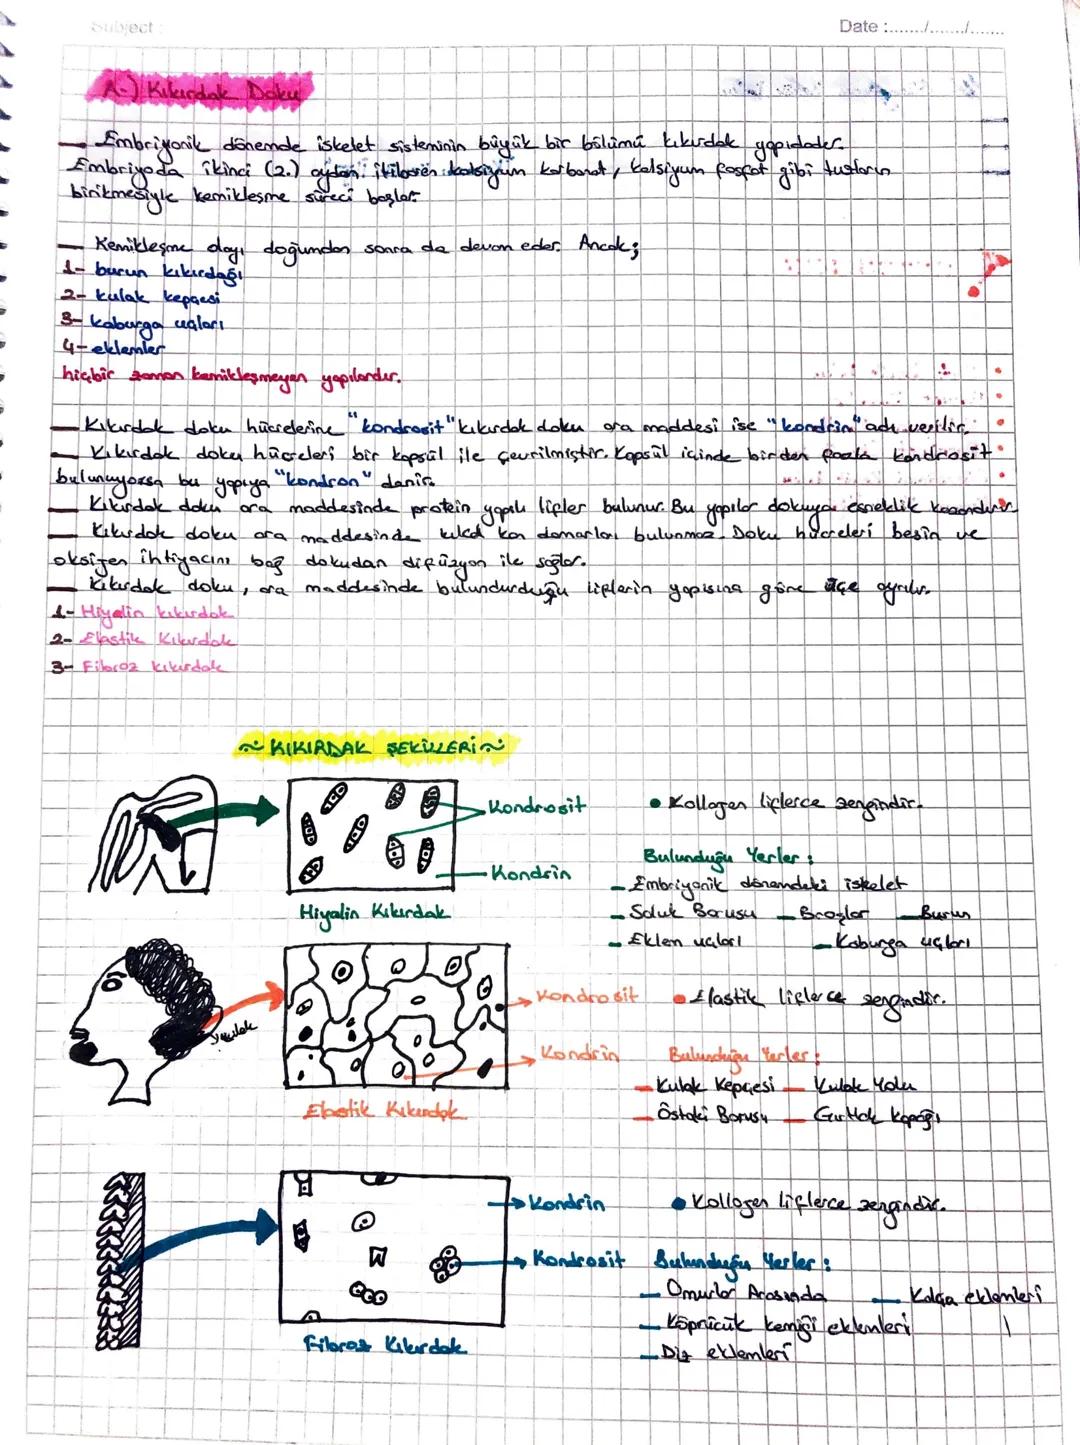 Subject :
Date :......./......./.......
A-) Kıkırdak Doku
— Embriyonik dönemde iskelet sisteminin büyük bir bölümü kıkırdak yapıdadır.
Embriyoda ikinci (2.) aydan itibaren kalsiyum karbonat, kalsiyum fosfat gibi tuzların
birikmesiyle kemikleşme süreci başlar.
— Kemikleşme olayı doğumdan sonra da devam eder. Ancak;
1- burun kıkırdağı
2- kulak kepçesi
3- kaburga uçları
4- eklemler
hiçbir zaman kemikleşmeyen yapılardır.
— Kıkırdak doku hücrelerine "kondrosit" kıkırdak doku ara maddesi ise "kondrin" adı verilir.
— Kıkırdak doku hücreleri bir kapsül ile çevrilmiştir. Kapsül içinde birden fazla kondrosit
bulunuyorsa bu yapıya "kondron" denir.
— Kıkırdak doku ara maddesinde protein yapılı lifler bulunur. Bu yapılar dokuya esneklik kazandırır.
— Kıkırdak doku ara maddesinde kılcal kan damarları bulunmaz. Doku hücreleri besin ve
oksijen ihtiyacını bağ dokudan difüzyon ile sağlar.
— Kıkırdak doku, ara maddesinde bulundurduğu liflerin yapısına göre üçe ayrılır.
1- Hiyalin kıkırdak
2- Elastik Kıkırdak
3- Fibroz kıkırdak
~ KIKIRDAK ŞEKİLLERİ ~
Kondrosit
• Kollagen liflerce zengindir.
Bulunduğu Yerler :
Kondrin
— Embriyonik dönemdeki iskelet
Hiyalin Kıkırdak
— Soluk Borusu — Bronşlar — Burun
— Eklem uçları — Kaburga uçları
Kondrosit
• Elastik liflerce zengindir.
Kondrin
Bulunduğu Yerler :
— Kulak Kepçesi — Kulak Yolu
Elastik Kıkırdak
— Östaki Borusu — Gırtlak Kapağı
Kondrin
• Kollagen liflerce zengindir.
Kondrosit
Bulunduğu Yerler :
— Omurlar Arasında — Kalça eklemleri
— Köprücük kemiği eklemleri
Fibroz Kıkırdak
— Diz eklemleri